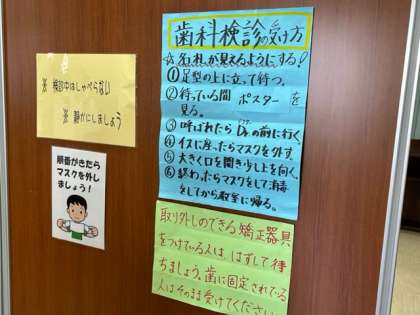 ※ 検診中はしゃべらない
※ 静かにしましょう
順番がきたら
マスクを外し
ましょう!
歯科検診の受け方
☆ 名札が見えるようにする!
① 足型の上に立って待つ。
② 待っている間 ポスター を
見る。
③ 呼ばれたら Dr.の前に行く。
④ イスに座ったらマスクを外す。
⑤ 大きく口を開き少し上を向く。
⑥ 終わったらマスクをして消毒
をしてから教室に帰る。
取り外しのできる矯正器具
をつけている人は、はずして待
ちましょう。歯に固定されている
人はそのまま受けてください